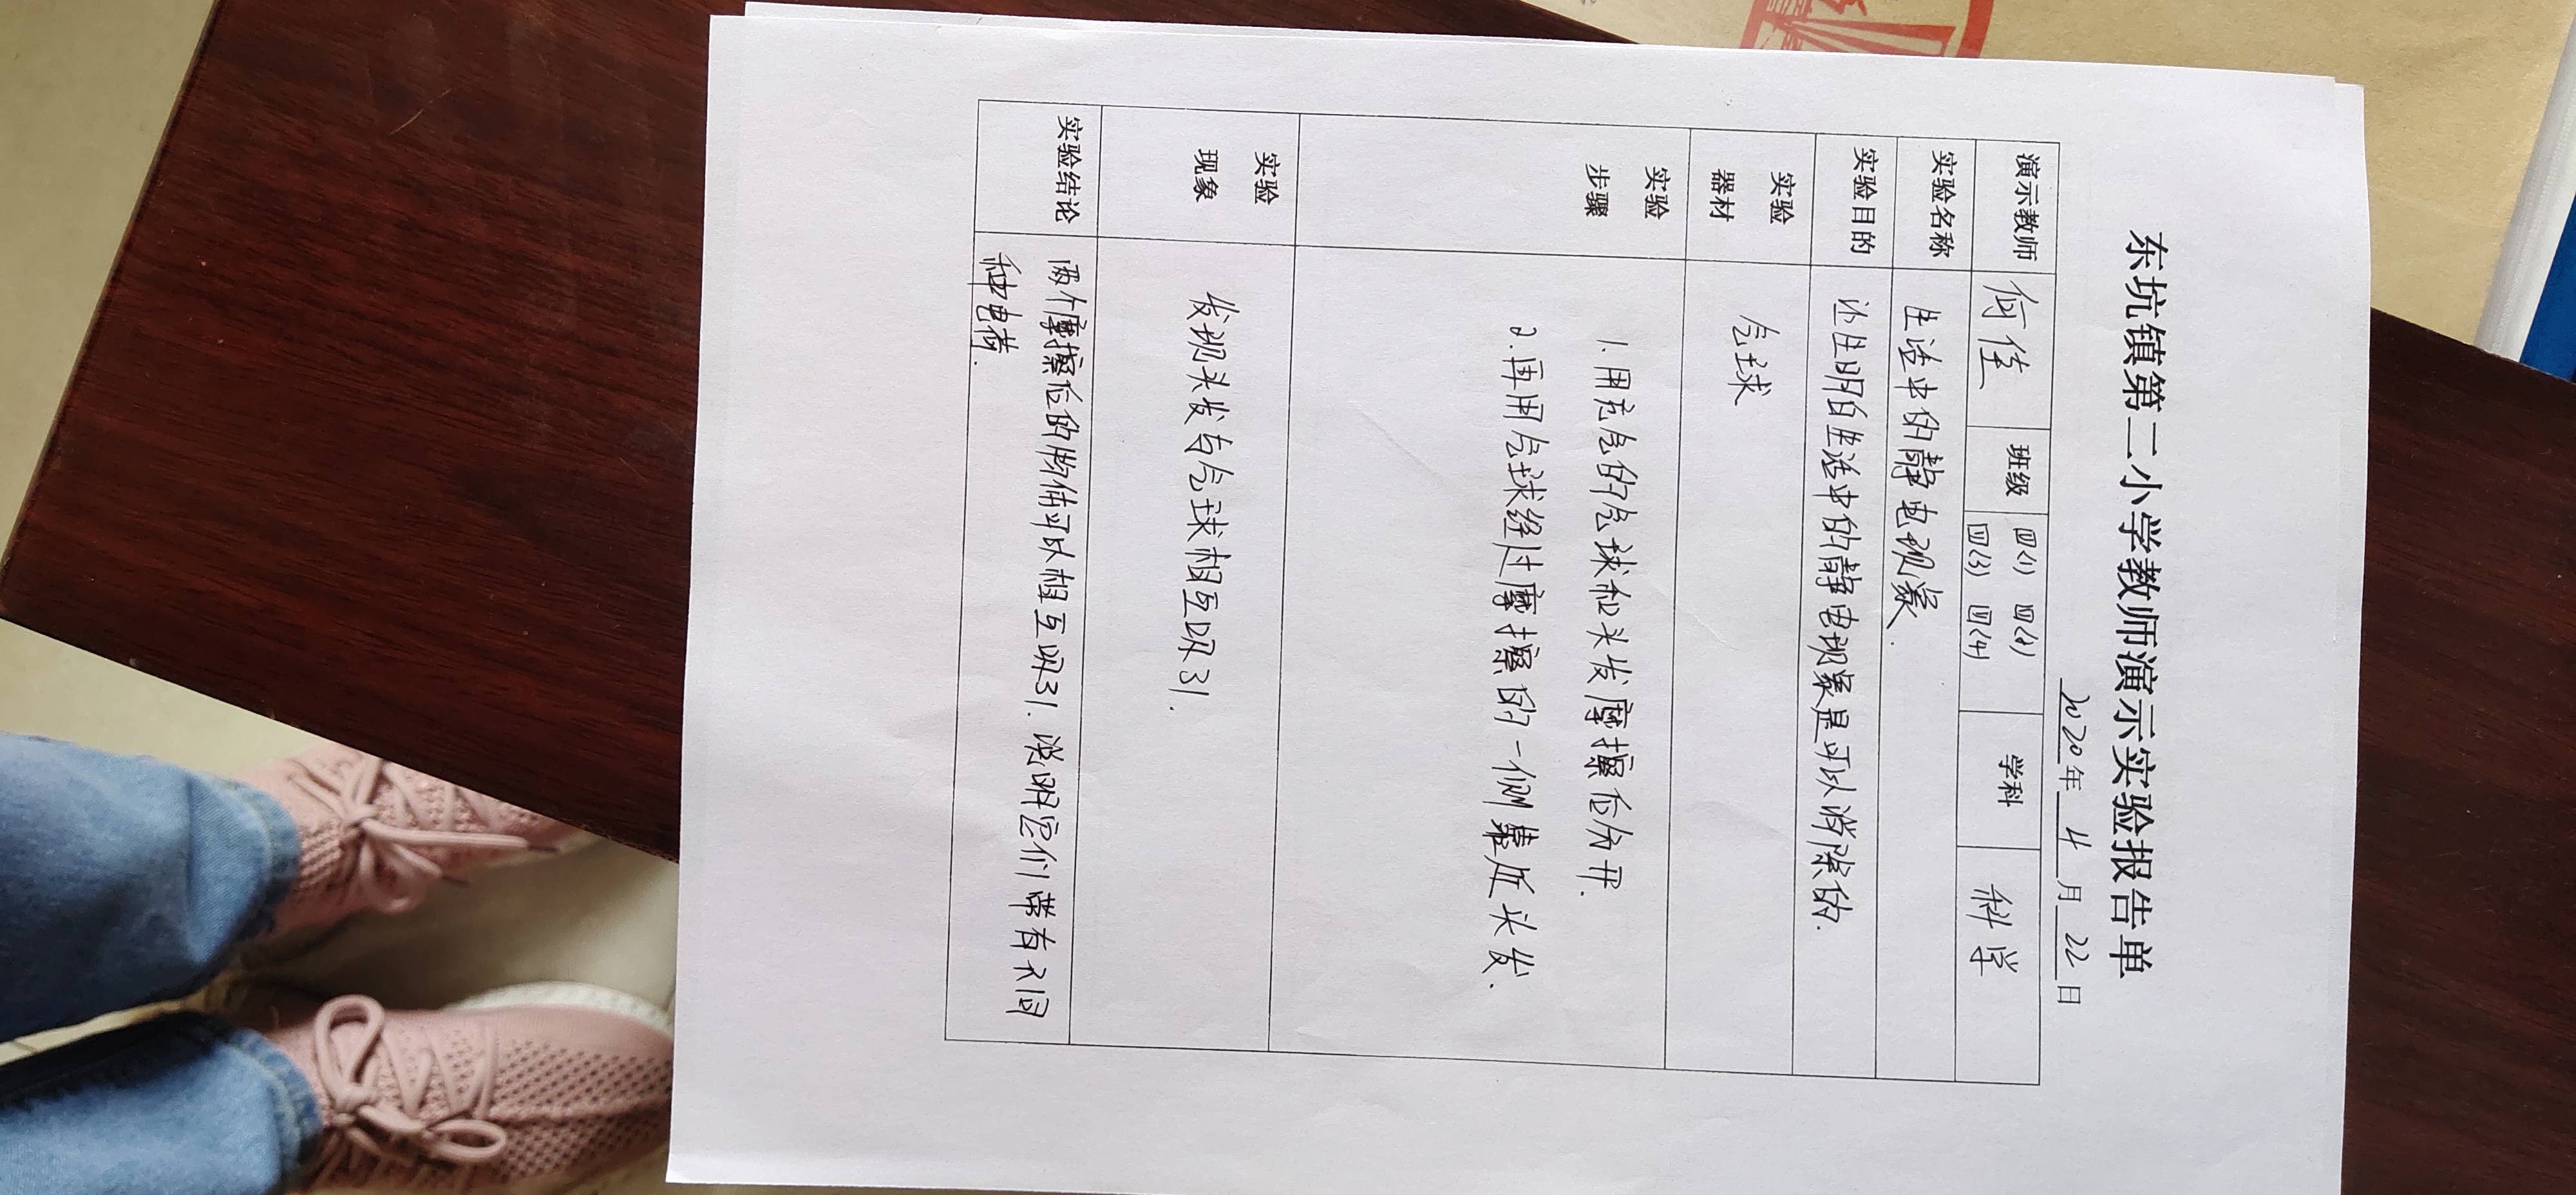 东坑镇第二小学教师演示实验报告单
2020年 4 月 22 日
演示教师 何佳 班级 四(1) 四(2) 学科 科学
四(3) 四(4)
实验名称 生活中的静电现象.
实验目的 让生明白生活中的静电现象是可以消除的.
实验
器材 气球
实验
步骤
1.用充气的气球和头发摩擦后分开.
2.再用气球经过摩擦的一侧靠近头发.
实验
现象 发现头发与气球相互吸引.
实验结论 两个摩擦后的物体可以相互吸引.说明它们带有不同
种电荷.